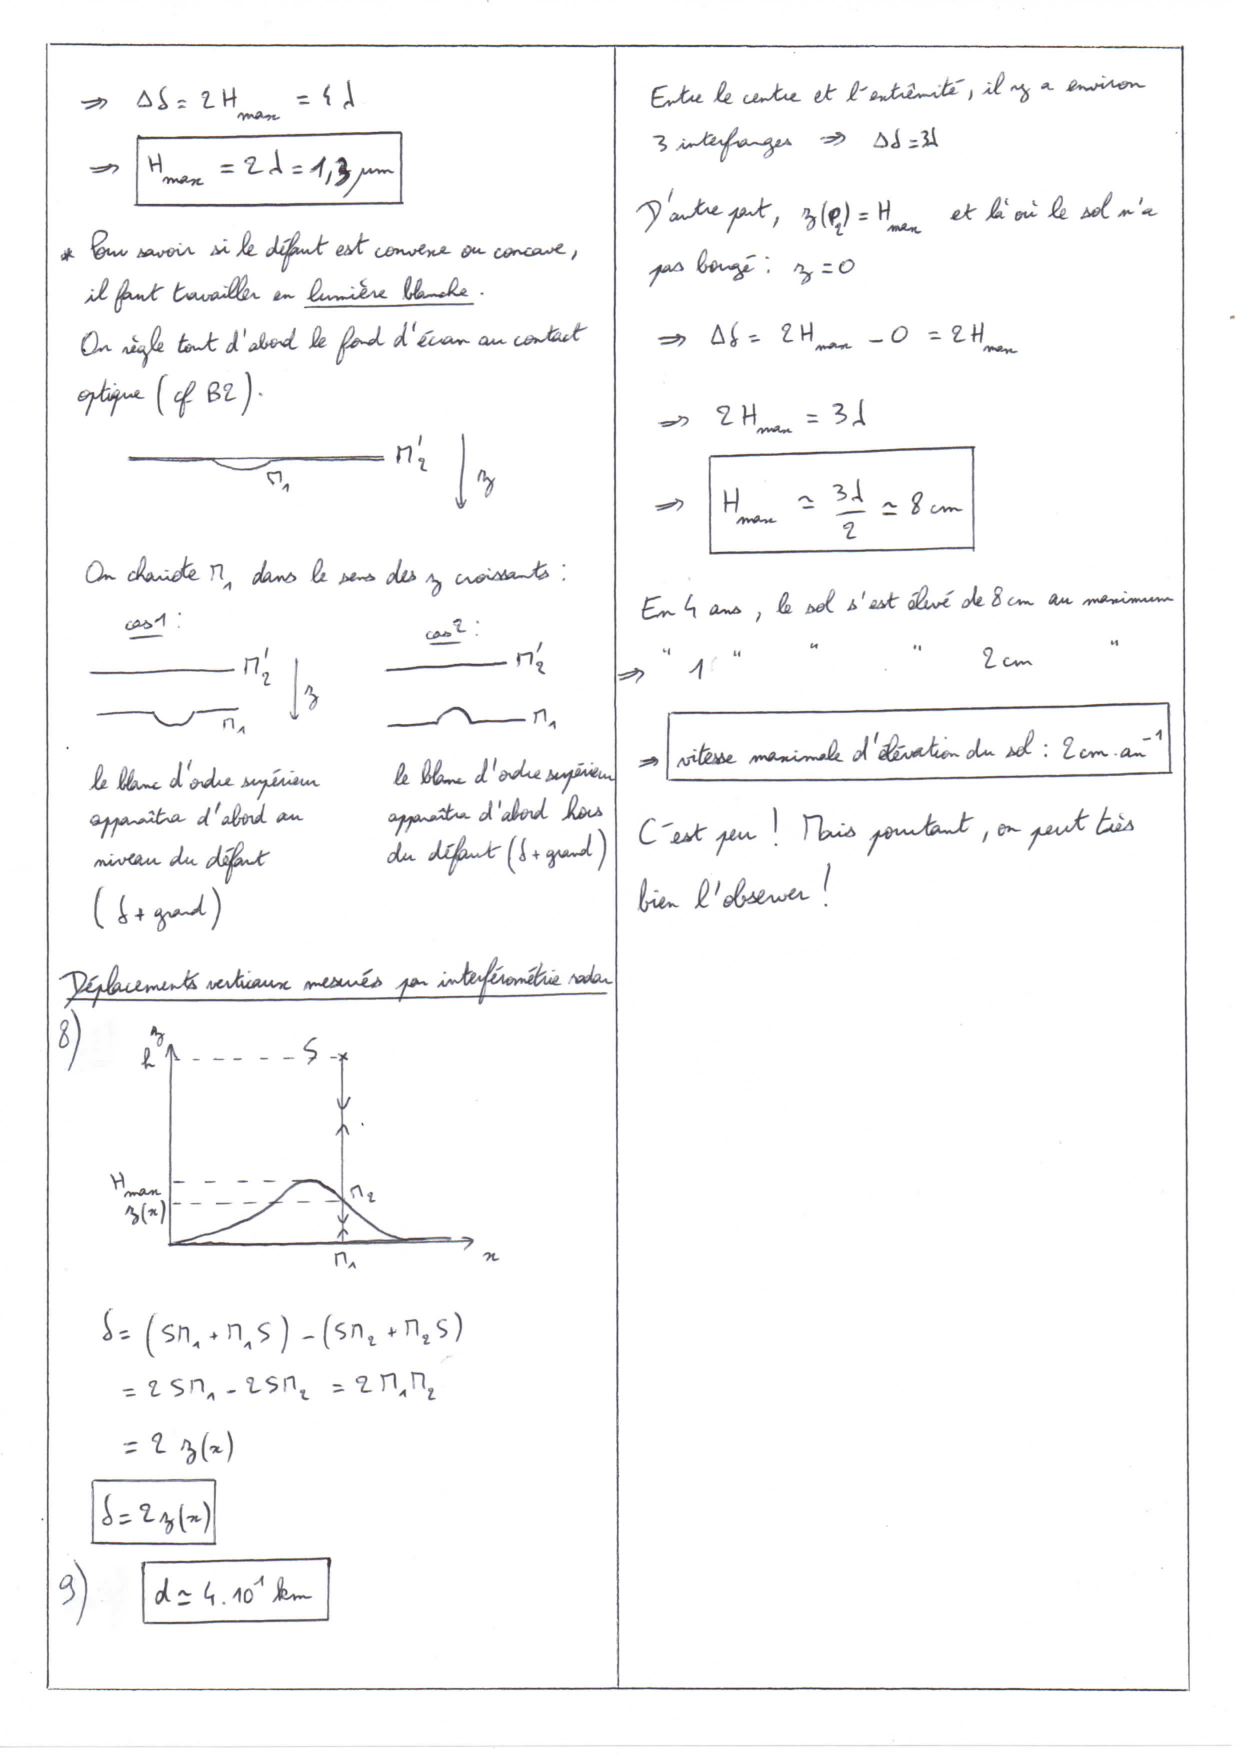 ⇒ Δδ = 2H_max = 4λ
⇒ H_max = 2λ = 1,3 µm
* Pour savoir si le défaut est convexe ou concave,
il faut travailler en lumière blanche.
On règle tout d'abord le fond d'écran au contact
optique (cf B2).
M'₂
M₁
z
On chariote M₁ dans le sens des z croissants :
cas 1 :
M'₂
z
M₁
le blanc d'ordre supérieur
apparaîtra d'abord au
niveau du défaut
(δ + grand)
cas 2 :
M'₂
M₁
le blanc d'ordre supérieur
apparaîtra d'abord hors
du défaut (δ + grand)
Déplacements verticaux mesurés par interférométrie radar
8)
z
h
S
H_max
z(x)
M₂
M₁
x
δ = (SM₁ + M₁S) - (SM₂ + M₂S)
= 2SM₁ - 2SM₂ = 2M₁M₂
= 2 z(x)
δ = 2z(x)
9)
d ≃ 4.10¹ km
Entre le centre et l'extrêmité, il y a environ
3 interfranges ⇒ Δδ = 3λ
D'autre part, z(P₂) = H_max et là où le sol n'a
pas bougé : z = 0
⇒ Δδ = 2H_max - 0 = 2H_max
⇒ 2H_max = 3λ
⇒ H_max ≃ 3λ/2 ≃ 8 cm
En 4 ans, le sol s'est élevé de 8 cm au maximum
⇒ " 1 " " " 2 cm "
⇒ vitesse maximale d'élévation du sol : 2 cm.an⁻¹
C'est peu ! Mais pourtant, on peut très
bien l'observer !